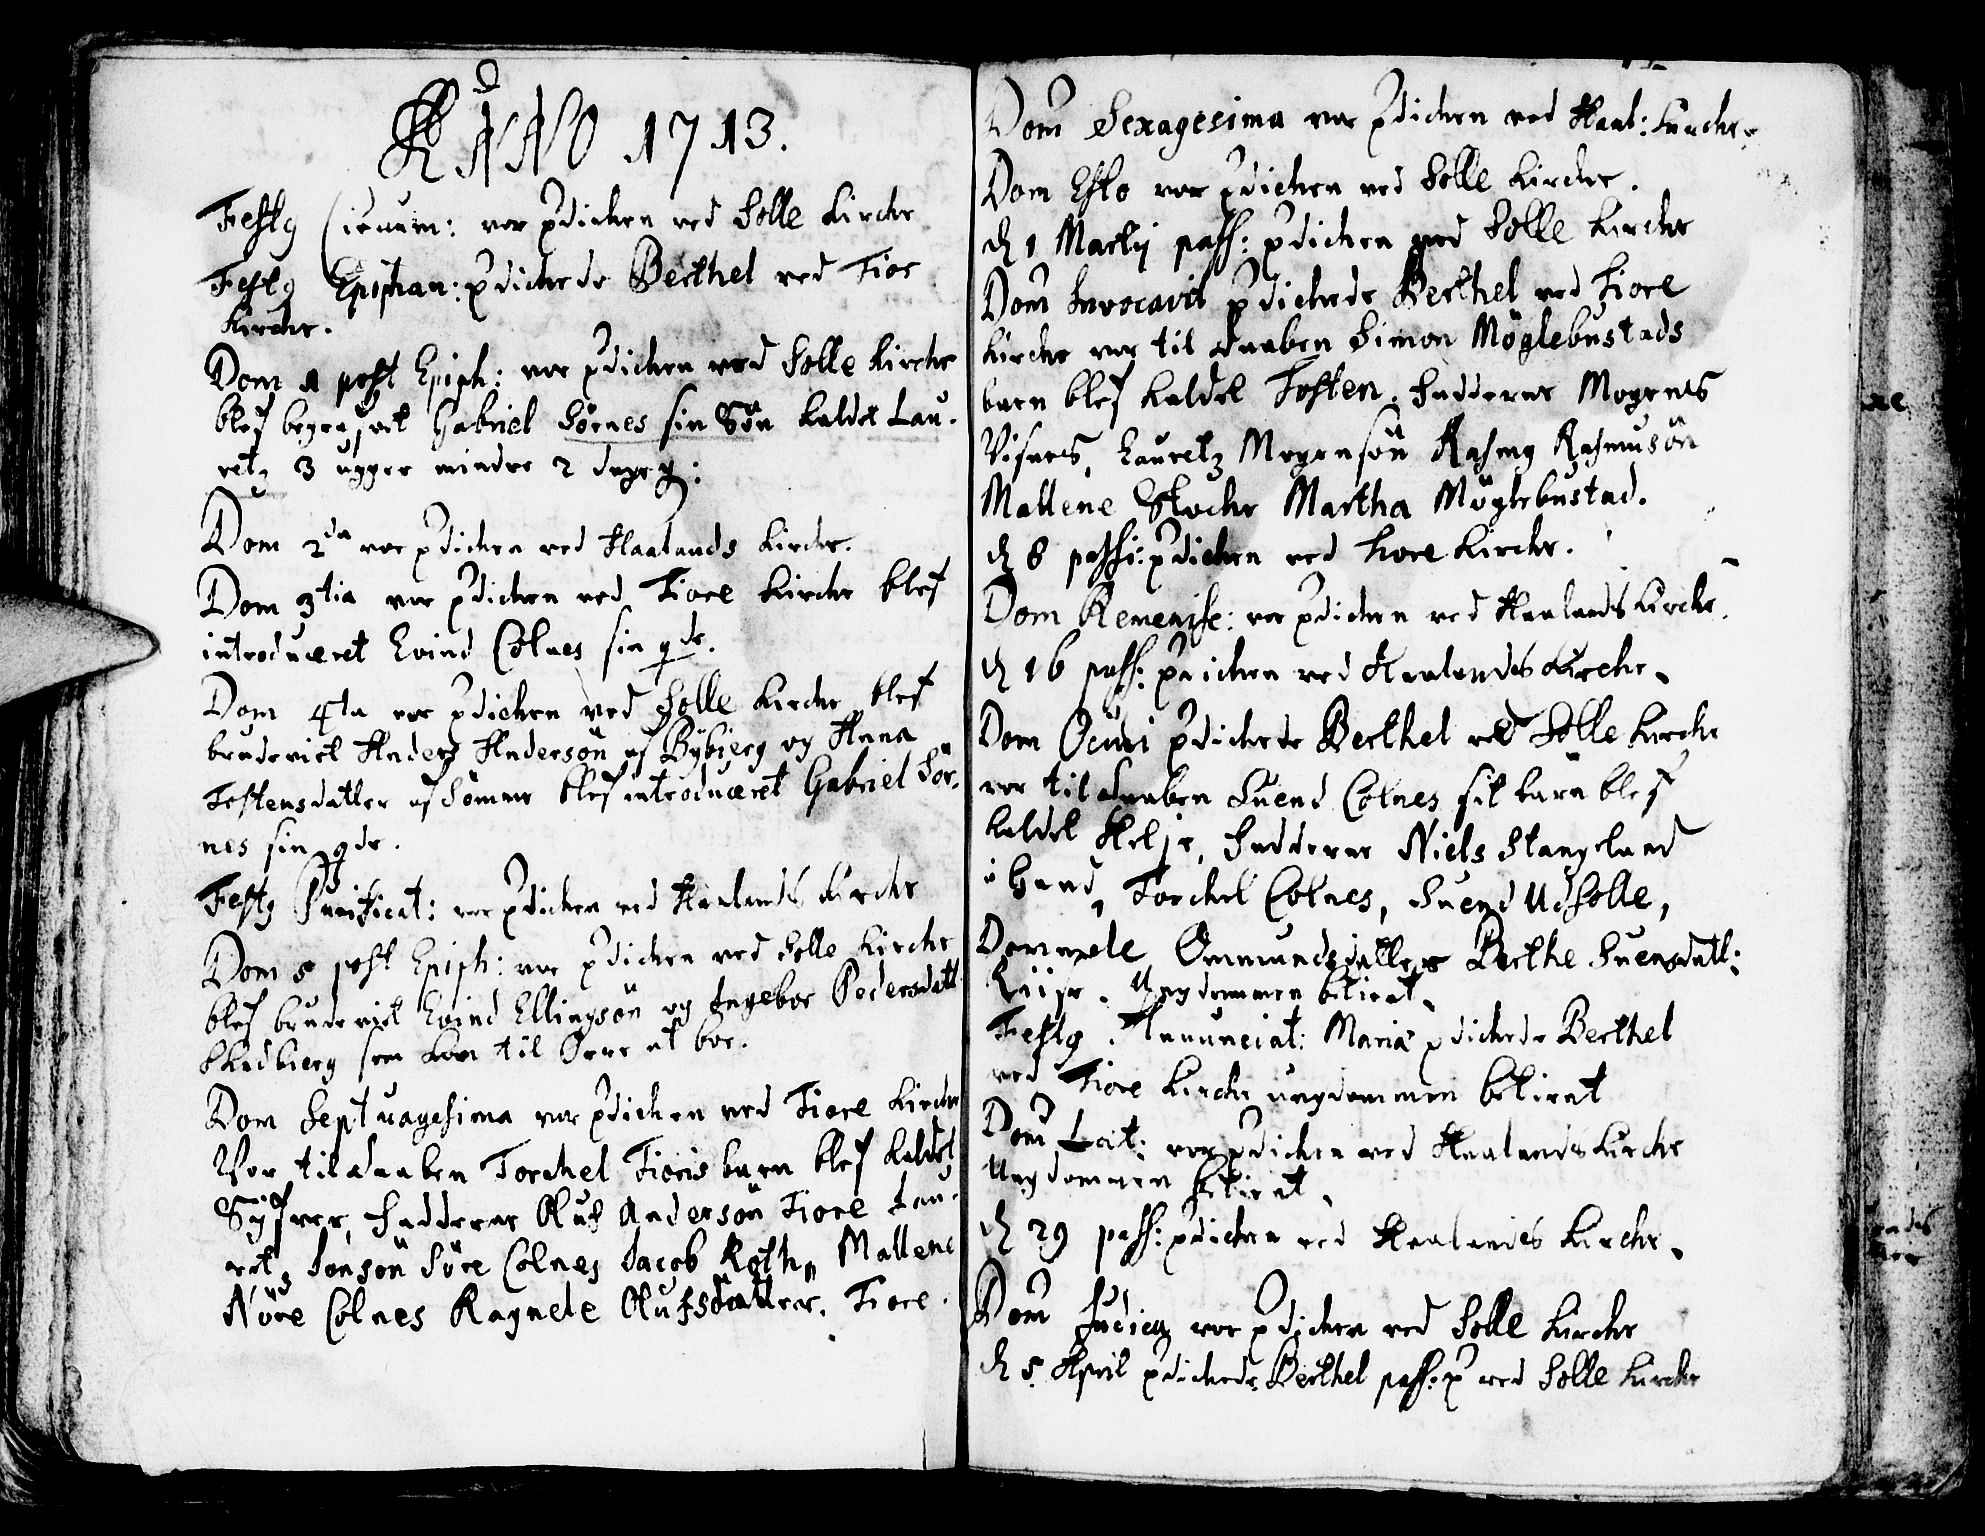 ANNO 1713.
Festg Circum: var pdicken ved Solle Kirche
Festg Epiphan: pdickede Berthel ved Fiore
Kirche.
Dom 1 post Epiph: var pdicken ved Solle Kirche
blef begrafvet Gabriel Sörnes sin Sön kaldet Lau-
retz 3 ugger mindre 2 dage g:
Dom 2da var pdicken ved Haalands Kirche.
Dom 3tia var pdicken ved Fiore Kirche blef
introduceret Evind Colnes sin qde.
Dom 4ta var pdicken ved Solle Kirche blef
brudeviet Anders Andersön af Bybierg og Anna
Tostensdatter af Sömme blef introduceret Gabriel Sör-
nes sin qde.
Festg Purificat: var pdicken ved Haalands Kirche
Dom 5 post Epiph: var pdicken ved Solle Kirche
blef brudeviet Evind Ellingsön og Ingebor Pedersdatt
Skadbierg som kom til Orre at boe.
Dom Septuagesima var pdicken ved Fiore Kirche
Var til daaben Torchel Fioris barn blef kaldet
Syfver, Fadderne Oluf Andersön Fiore Lau-
retz Jonsön Söre Colnes Jacob Roth, Mallene
Nöre Colnes Ragnele Olufsdatter. Fiore.
Dom Sexagesima var pdicken ved Haal: Kirche.
Dom Esto var pdicken ved Solle Kirche.
d 1 Martij pass: pdicken ved Solle Kirche
Dom Invocavit pdickede Berthel ved Fiore
Kirche var til daaben Simon Möglebustads
barn blef kaldet Tosten. Fadderne Mogens
Visnes, Lauretz Mogensön Rasmg Rasmusön
Mallene Stocke Martha Möglebustad.
d 8 passi: pdicken ved Fiore Kirche.
Dom Remenise: var pdicken ved Haalands Kirche.
d 16 pass: pdicken ved Haalandes Kirche.
Dom Oculi pdickede Berthel ved Solle Kirche
var til daaben Suend Colnes sit barn blef
kaldet Helje, Fadderne Niels Stangeland
i Sand, Torchel Colnes, Suend Udsolle,
Ommundsdatter Berthe Suensdatt:
Riije. Ungdommen betient.
Festg. Annunciat: Mariæ pdickede Berthel
ved Fiore Kirche ungdommen betient
Dom Læt: var pdicken ved Haalands Kirche
Ungdommen betient.
d 29 pass: pdicken ved Haalandes Kirche.
Dom Judica var pdicken ved Solle Kirche
d 5 April pdickede Berthel pass: p ved Solle Kirche